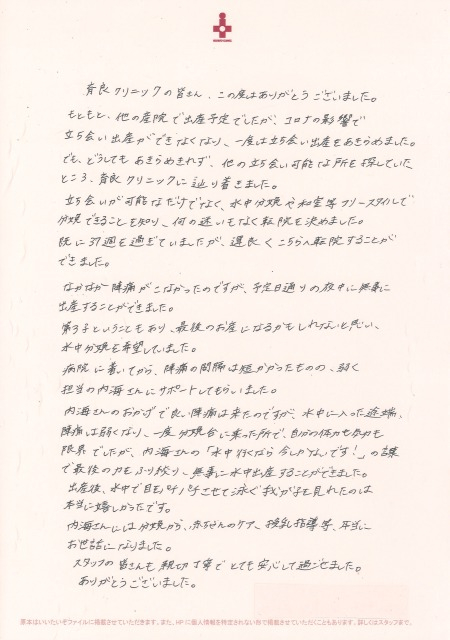 育良クリニックの皆さん、この度はありがとうございました。
もともと、他の産院で出産予定でしたが、コロナの影響で
立ち会い出産ができなくなり、一度は立ち会い出産をあきらめました。
でも、どうしてもあきらめきれず、他の立ち会い可能な所を探していた
ところ、育良クリニックに辿り着きました。
立ち会いが可能なだけでなく、水中分娩や和室等フリースタイルで
分娩できることを知り、何の迷いもなく転院を決めました。
既に37週を過ぎていましたが、運良くこちらへ転院することが
できました。
なかなか陣痛がこなかったのですが、予定日通りの夜中に無事に
出産することができました。
第3子ということもあり、最後のお産になるかもしれないと思い、
水中分娩を希望していました。
病院に着いてから、陣痛の間隔は短かかったものの、弱く
担当の内海さんにサポートしてもらいました。
内海さんのおかげで良い陣痛は来たのですが、水中に入った途端、
陣痛は弱くなり、一度分娩台に乗った所で、自分の体力も気力も
限界でしたが、内海さんの「水中行くなら今しかないです!」の言葉
で最後の力をふり絞り、無事に水中出産することができました。
出産後、水中で目をパチパチさせて泳ぐ我が子を見れたのは
本当に嬉しかったです。
内海さんには分娩から、赤ちゃんのケア、授乳指導等、本当に
お世話になりました。
スタッフの皆さんも親切丁寧でとても安心して過ごせました。
ありがとうございました。
原本はいいたいぞファイルに掲載させていただきます。また、HPに個人情報を特定されない形で掲載させていただくこともあります。詳しくはスタッフまで。